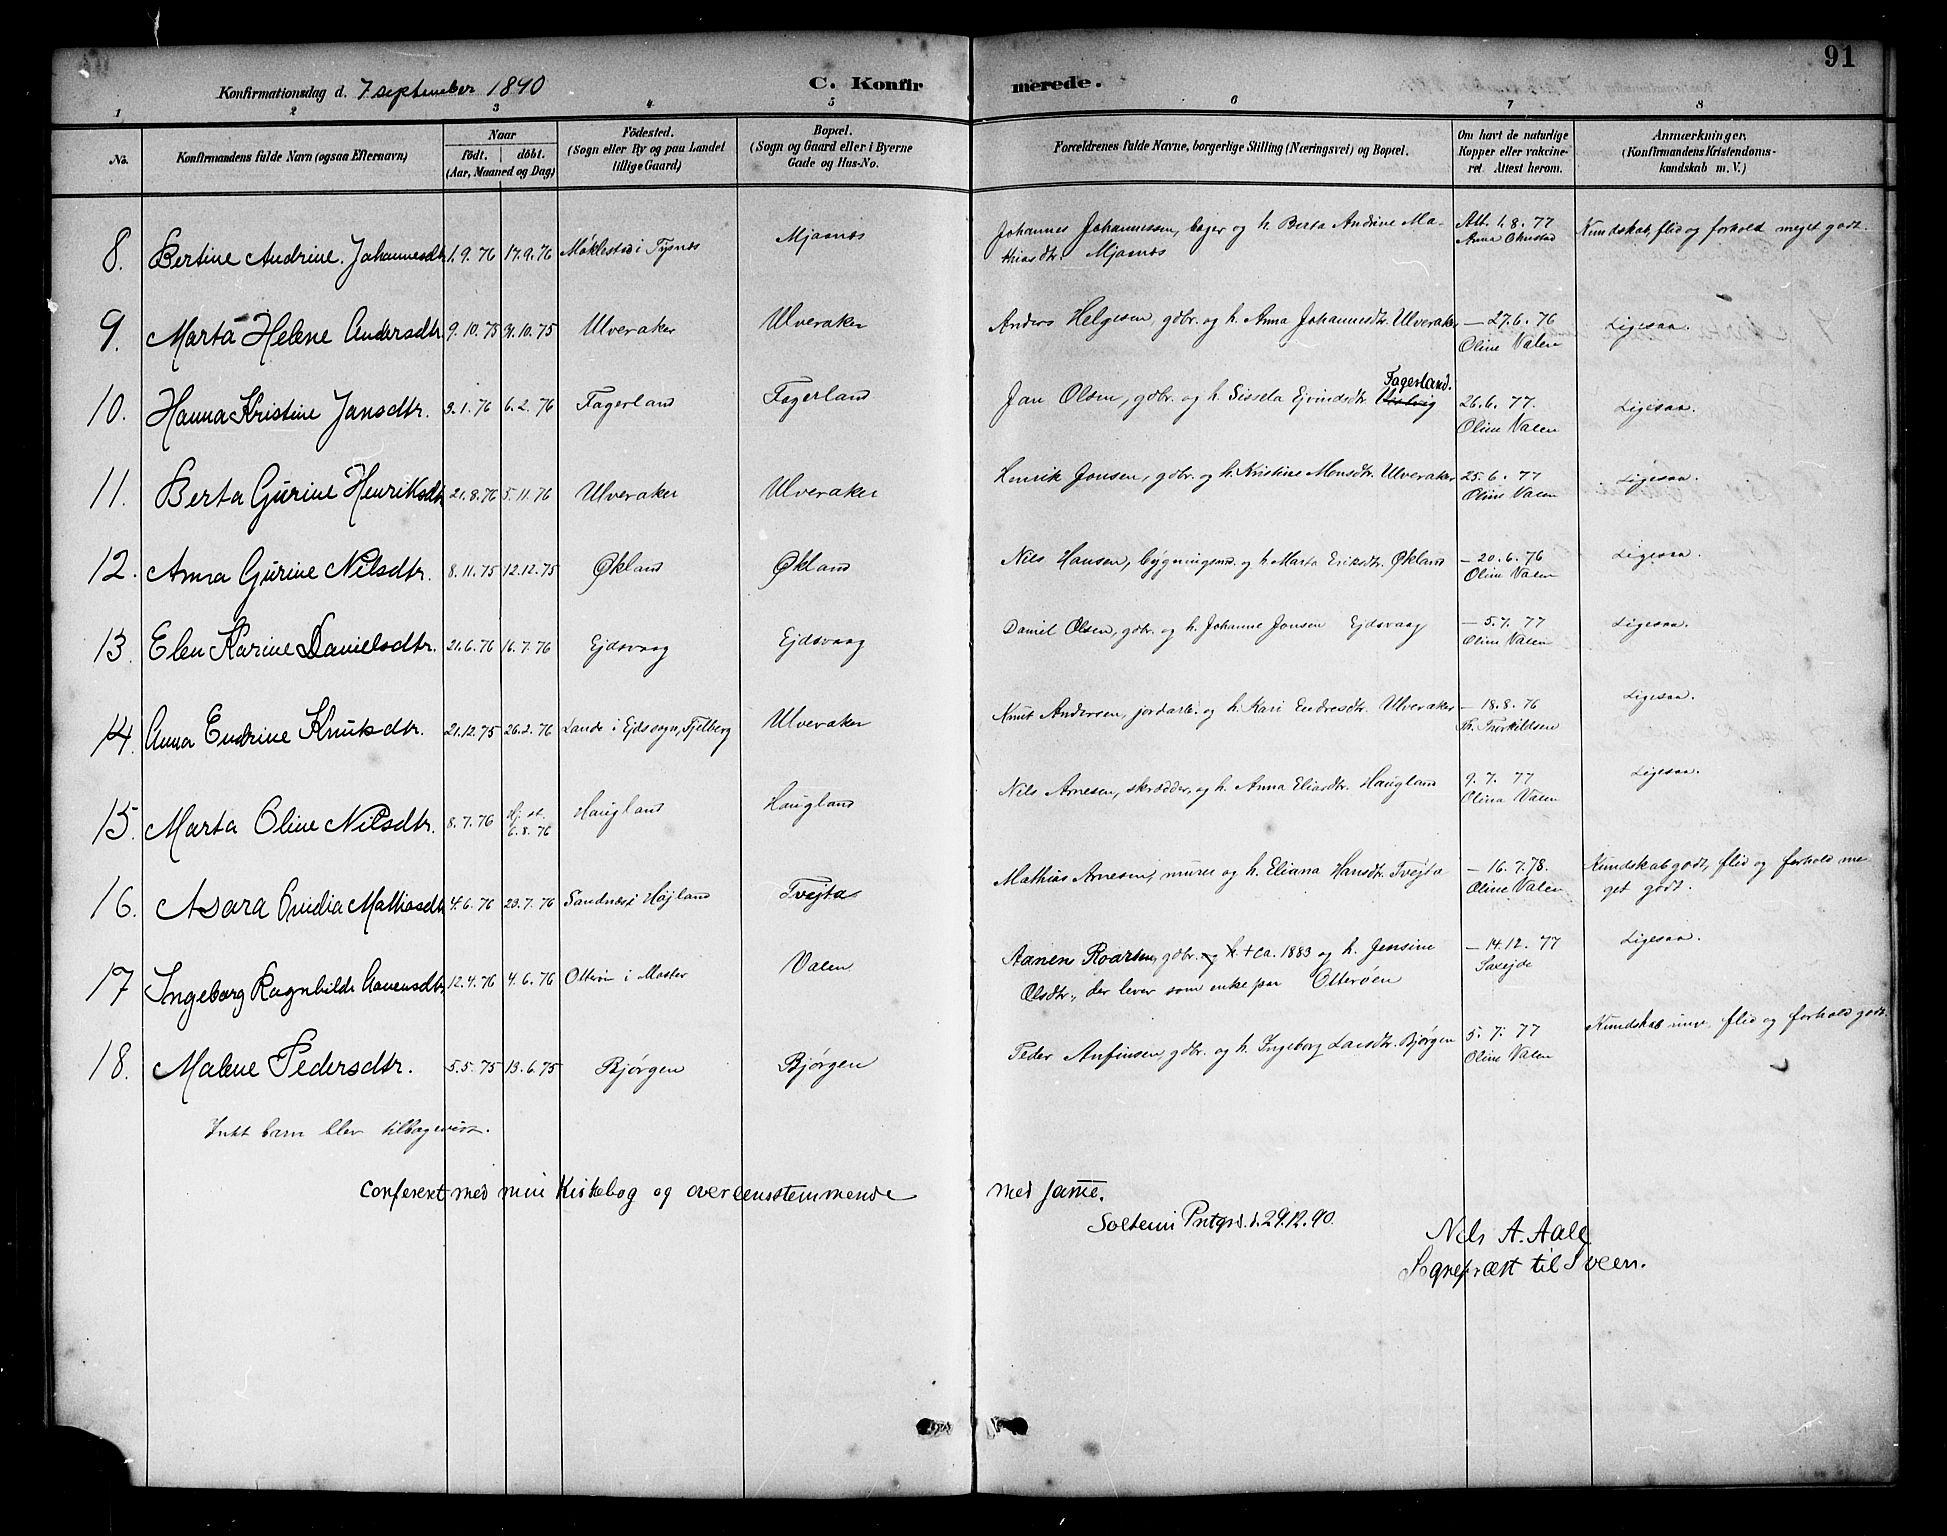 91
Konfirmationsdag d. 7 september 1890 C. Konfirmerede.
1 2 3 4 5 6 7 8
No. Konfirmandens fulde Navn (ogsaa Efternavn) Naar födt. döbt. (Aar, Maaned og Dag) Födested. (Sogn eller By og paa Landet tillige Gaard) Bopæl. (Sogn og Gaard eller i Byerne Gade og Hus-No. Forældrenes fulde Navne, borgerlige Stilling (Næringsvei) og Bopæl. Om havt de naturlige Kopper eller vakcineret. Attest herom. Anmærkninger. (Konfirmandens Kristendomskundskab m. V.)
8. Bertine Andrine Johannesdtr. 1.9.76 17.9.76 Møklestad i Tysnæs Mjaanæs Johannes Johannessen, bager og h. Berta Andrine Ma- Att. 1.8.77 Kundskab, flid og forhold meget godt.
thiasdtr. Mjaanæs Anna
9. Marta Helene Andersdtr. 9.10.75 31.10.75 Ulveraker Ulveraker Anders Helgesen, gdbr. og h. Anna Johannesdtr. Ulveraker — 27.6.76 Ligesaa.
Oline Valen
10. Hanna Kristine Jansdtr. 3.1.76 6.2.76 Fagerland Fagerland Jan Olsen, gdbr. og h. Sissela Ejvindsdtr. Fagerland. 26.6.77. Ligesaa.
Oline Valen
11. Berta Gurine Henriksdtr 21.8.76 5.11.76 Ulveraker Ulveraker Henrik Jonsen, gdbr. og h. Kristine Monsdtr. Ulveraker 25.6.77 Ligesaa.
Oline Valen
12. Anna Gurine Nilsdtr. 8.11.75 12.12.75 Økland Økland Nils Hansen, bygningsmd. og h. Marta Eriksdtr. Økland — 20.6.76 Ligesaa.
Oline Valen
13. Elen Karine Danielsdtr. 21.6.76 16.7.76 Ejdsvaag Ejdsvaag Daniel Olsen, gdbr. og h. Johanne Jonsen Ejdsvaag — 5.7.77 Ligesaa.
Oline Valen
14. Anna Endrine Knutsdtr. 21.12.75 26.2.76 Lande i Ejdssogn, Fjelberg Ulveraker Knut Andersen, jordarb. og h. Kari Endresdtr. Ulveraker — 18.8.76 Ligesaa.
Th. Thorkildsen
15. Marta Oline Nilsdtr. 8.7.76 Hj. st. 6.8.76 Haugland Haugland Nils Arnesen, skrædder, og h. Anna Eliasdtr. Haugland 9.7.77 Ligesaa.
Olina Valen
16. Asara Ovidia Mathiasdtr 4.6.76 23.7.76 Sandnæs i Højland Tvejta Mathias Arnesen, murer og h. Eliana Hansdtr. Tvejta — 16.7.78. Kundskab godt, flid og forhold me-
Oline Valen get godt.
17 Ingeborg Ragnhilde Aanensdtr. 12.4.76 4.6.76 Otterøen i Moster Valen Aanen Roartsen, gdbr. og h. + ca. 1883 og h. Jensine — 14.12.77 Ligesaa.
Olsdtr., der lever som enke paa Otterøen
18. Malene Pedersdtr. 5.5.75 13.6.75 Bjørgen Bjørgen Peder Anfinsen, gdbr. og h. Ingeborg Larsdtr. Bjørgen 5.7.77 Kundskab flid og forhold godt.
Oline Valen
Intet barn blev tilbagevist.
Confereret med min Kirkebog og overensstemmende med samme.
29.12.90.
Nils A. Aale
Sognepræst til Sveen.